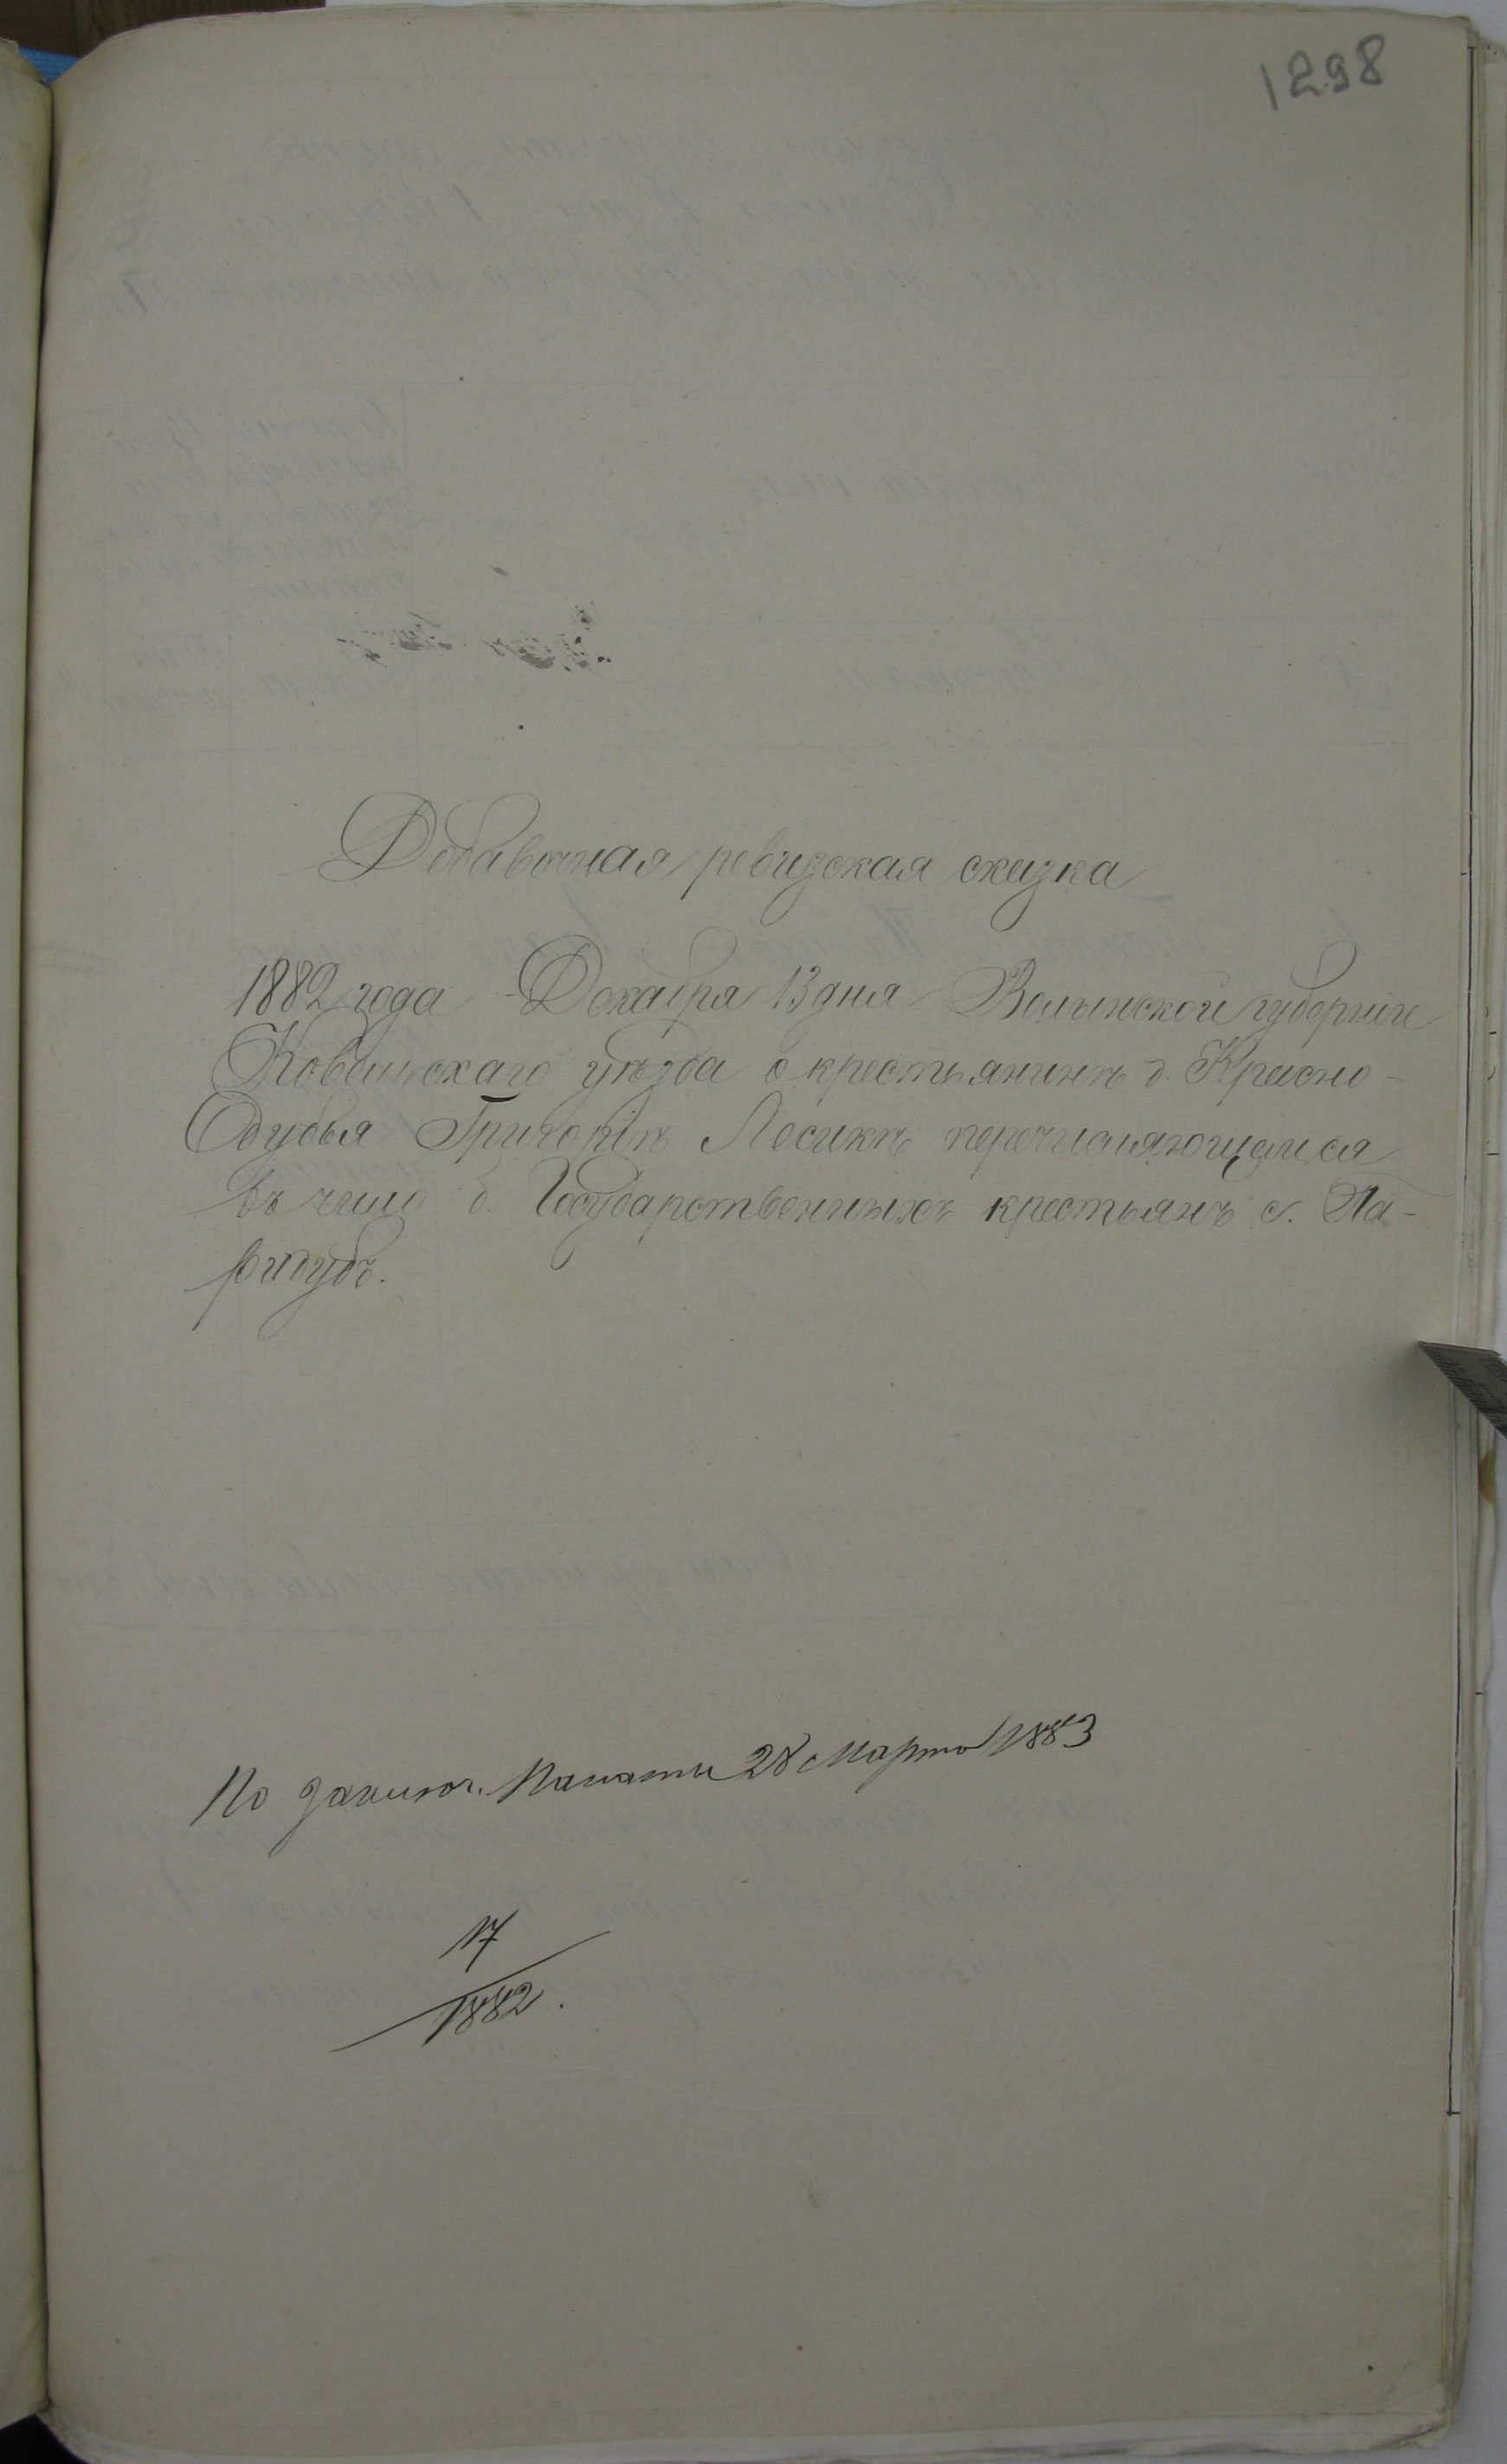 1298
Добавочная ревизская сказка
1882 года Декабря 13 дня Волынской губерніи
Ковельскаго уѣзда о крестьянинѣ д. Красно-
Дубья Григоріѣ Лесикѣ перечисляющемся
въ число б. Государственныхъ крестьянъ с. Па-
ридубъ.
По заключ. Палаты 28 Марта 1883
17
1882.